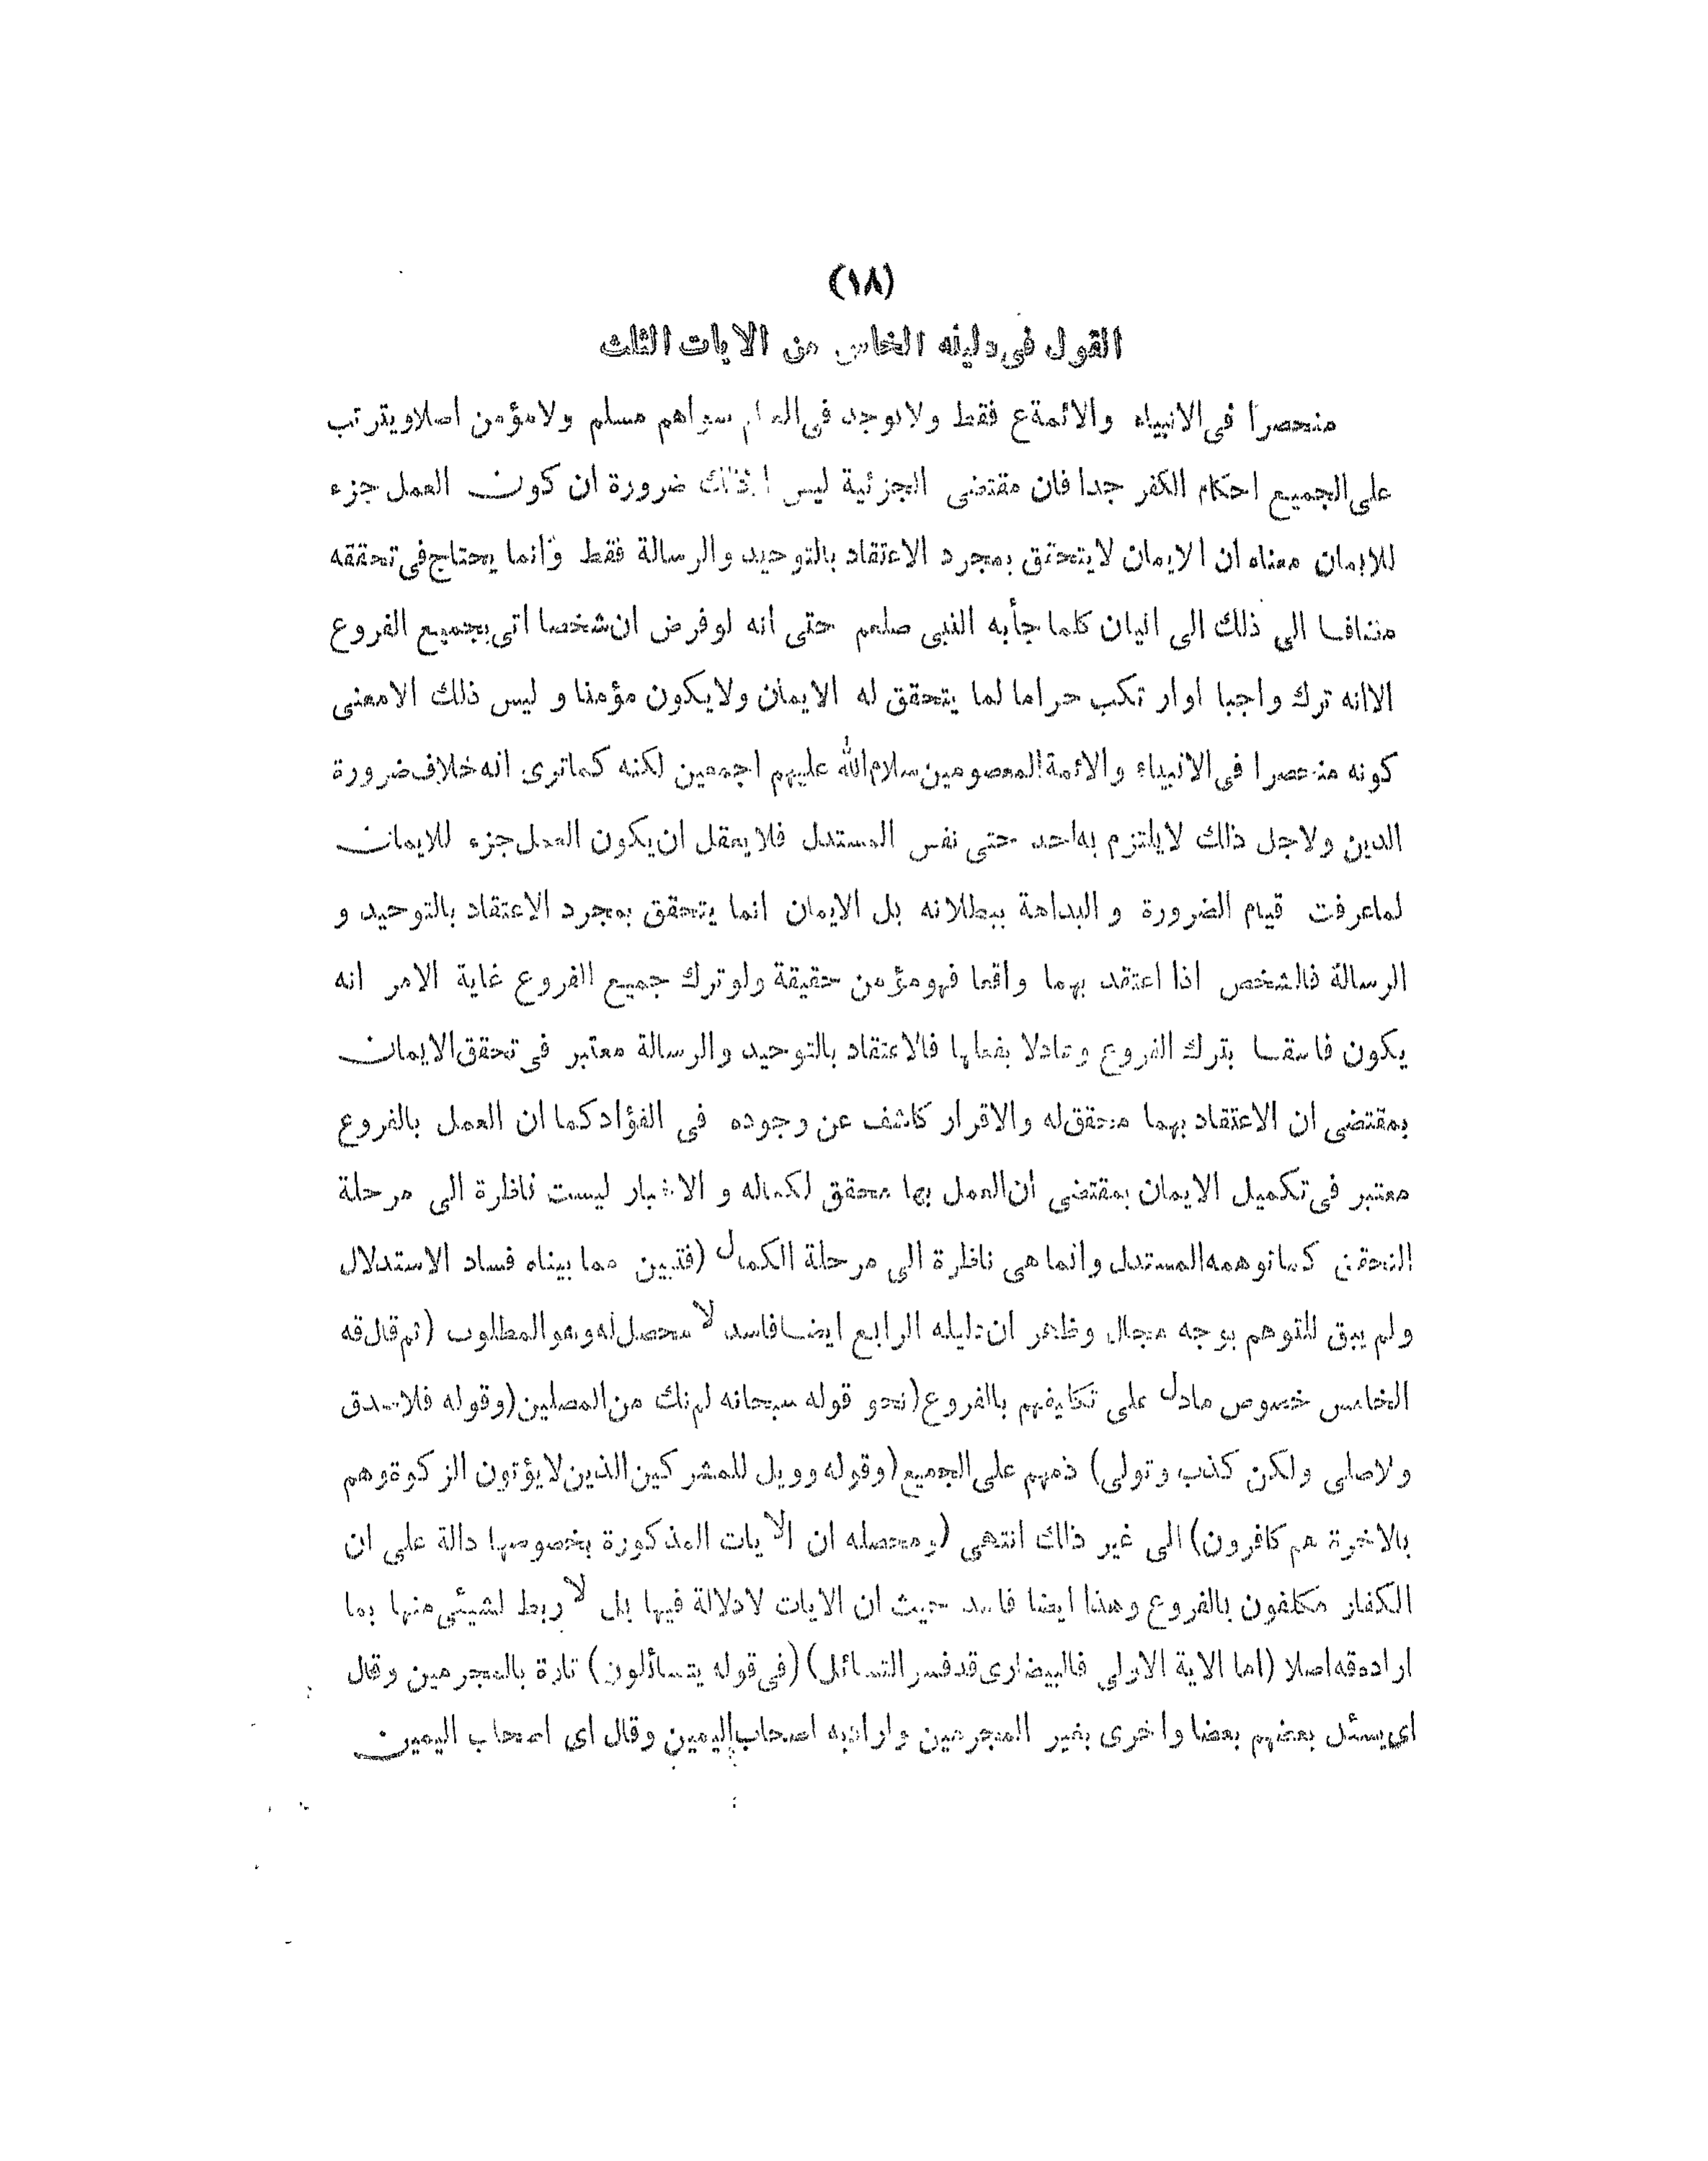 (١٨)
القول فى دليله الخامس من الايات الثلث
منحصرا فى الانبياء والائمة ع فقط ولا يوجد فى العالم سواهم مسلم ولا مؤمن اصلا ويترتب
على الجميع احكام الكفر جدا فان مقتضى الجزئية ليس الا ذلك ضرورة ان كون العمل جزء
للايمان معناه ان الايمان لا يتحقق بمجرد الاعتقاد بالتوحيد والرسالة فقط وانما يحتاج فى تحققه
مضافا الى ذلك الى اتيان كلما جأبه النبى صلعم حتى انه لو فرض ان شخصا اتى بجميع الفروع
الا انه ترك واجبا او ارتكب حراما لما يتحقق له الايمان ولا يكون مؤمنا و ليس ذلك الا معنى
كونه منحصرا فى الانبياء والائمة المعصومين سلام الله عليهم اجمعين لكنه كما ترى انه خلاف ضرورة
الدين ولاجل ذلك لا يلتزم به احد حتى نفس المستدل فلا يعقل ان يكون العمل جزء للايمان
لما عرفت قيام الضرورة و البداهة ببطلانه بل الايمان انما يتحقق بمجرد الاعتقاد بالتوحيد و
الرسالة فالشخص اذا اعتقد بهما واقعا فهو مؤمن حقيقة ولو ترك جميع الفروع غاية الامر انه
يكون فاسقا بترك الفروع وعادلا بفعلها فالاعتقاد بالتوحيد والرسالة معتبر فى تحقق الايمان
بمقتضى ان الاعتقاد بهما محقق له والاقرار كاشف عن وجوده فى الفؤاد كما ان العمل بالفروع
معتبر فى تكميل الايمان بمقتضى ان العمل بها محقق لكماله و الاخبار ليست ناظرة الى مرحلة
التحقق كما توهمه المستدل وانما هى ناظرة الى مرحلة الكمال (فتبين مما بيناه فساد الاستدلال
ولم يبق للتوهم بوجه مجال وظهر ان دليله الرابع ايضا فاسد لا محصل له وهو المطلوب (ثم قال قه
الخامس خصوص مادل على تكليفهم بالفروع (نحو قوله سبحانه لم نك من المصلين (وقوله فلا صدق
ولا صلى ولكن كذب وتولى) ذمهم على الجميع (وقوله وويل للمشركين الذين لا يؤتون الزكوة وهم
بالاخرة هم كافرون) الى غير ذالك انتهى (ومحصله ان الايات المذكورة بخصوصها دالة على ان
الكفار مكلفون بالفروع وهذا ايضا فاسد حيث ان الايات لا دلالة فيها بل لا ربط لشيئى منها بما
اراده قه اصلا (اما الاية الاولى فالبيضاوى قد فسر التسائل) (فى قوله يتسائلون) تارة بالمجرمين وقال
اى يسئل بعضهم بعضا واخرى بغير المجرمين واراد به اصحاب اليمين وقال اى اصحاب اليمين